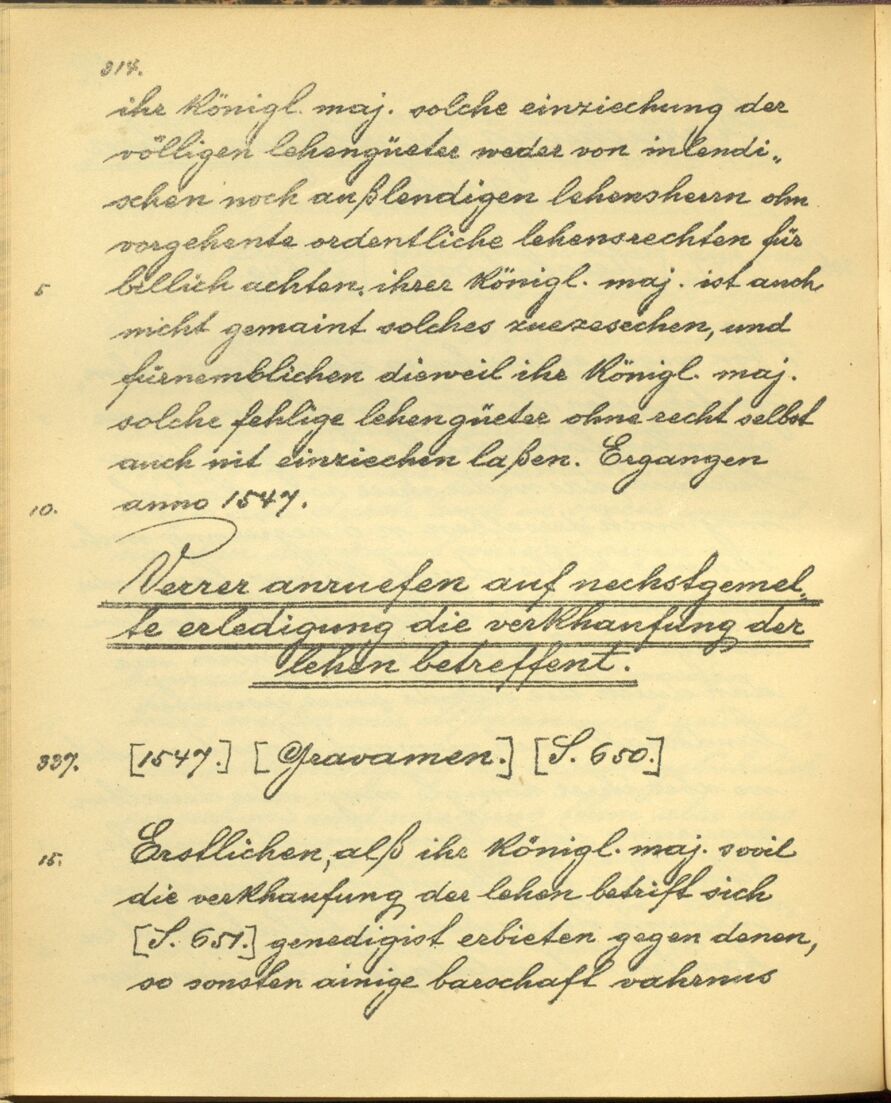 314.
ihr Königl. maj. solche einziechung der
völligen lehengüeter weder von inlendi„
schen noch außlendigen lehensherrn ohn
vorgehente ordentliche lehensrechten für
5 billich achten, ihrer Königl. maj. ist auch
nicht gemaint solches zuezesechen, und
fürnemblichen dieweil ihr Königl. maj.
solche fehlige lehengüeter ohne recht selbst
auch nit einziechen laßen. Ergangen
10. anno 1547.
Verrer anruefen auf nechstgemel„
te erledigung die verkhaufung der
lehen betreffent.
337. [1547.] [Gravamen.] [S. 650.]
15. Erstlichen, alß ihr Königl. maj. sovil
die verkhaufung der lehen betrift sich
[S. 651.] genedigist erbieten gegen denen,
so sonsten ainige barschaft vahrnus